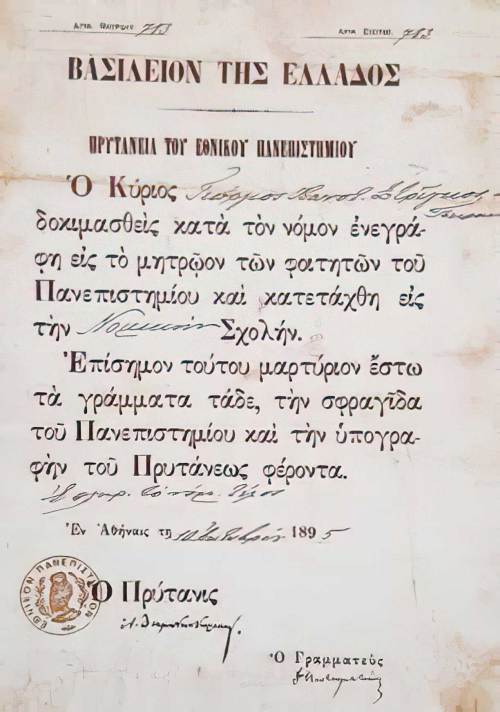 ΑΡΙΘ. ΜΗΤΡΩΟΥ 753 ΑΡΙΘ. ΕΙΣΙΤΗΡ. 753
ΒΑΣΙΛΕΙΟΝ ΤΗΣ ΕΛΛΑΔΟΣ
ΠΡΥΤΑΝΕΙΑ ΤΟΥ ΕΘΝΙΚΟΥ ΠΑΝΕΠΙΣΤΗΜΙΟΥ
Ὁ Κύριος
δοκιμασθεὶς κατὰ τὸν νόμον ἐνεγρά-
φη εἰς τὸ μητρῷον τῶν φοιτητῶν τοῦ
Πανεπιστημίου καὶ κατετάχθη εἰς
τὴν Νομικὴν Σχολήν.
Ἐπίσημον τούτου μαρτύριον ἔστω
τὰ γράμματα τάδε, τὴν σφραγῖδα
τοῦ Πανεπιστημίου καὶ τὴν ὑπογρα-
φὴν τοῦ Πρυτάνεως φέροντα.
Ἐν Ἀθήναις τῇ 10 Ὀκτωβρίου 1895
ΕΘΝΙΚΟΝ ΠΑΝΕΠΙΣΤΗΜΙΟΝ
Ὁ Πρύτανις
Ὁ Γραμματεὺς